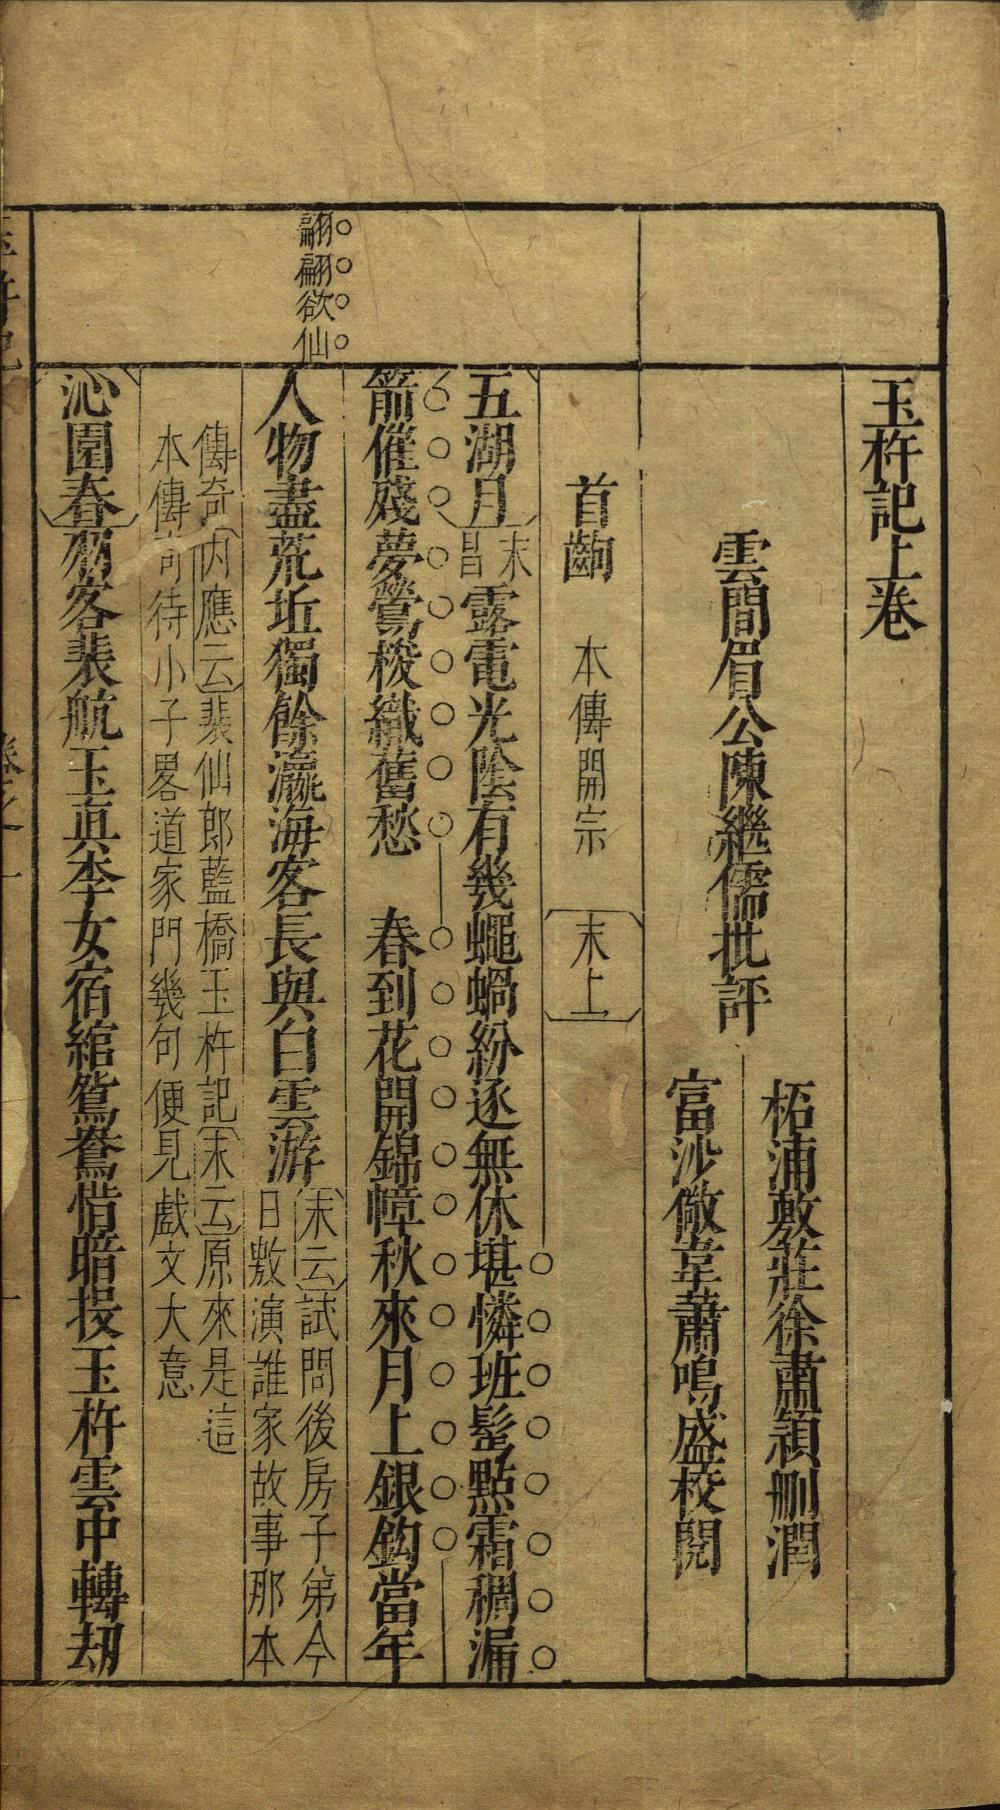 玉杵記上卷
雲間眉公陳繼儒批評
柘浦敷莊徐肅頴刪潤
富沙儆韋蕭鳴盛校閱
首齣　本傳開宗　末上
五湖月末唱露電光陰有幾蠅蝸紛逐無休堪憐班髩點霜稠漏
箭催殘夢鶯梭織舊愁　春到花開錦幛秋來月上銀鈎當年
翩翩欲仙
人物盡荒坵獨餘瀛海客長與白雲游末云試問後房子弟今
日敷演誰家故事那本
傳奇內應云裴仙郎藍橋玉杵記末云原來是這
本傳奇待小子畧道家門幾句便見戲文大意
沁園春客裴航玉真李女宿綰鴛鴦惜暗投玉杵雲中轉刼